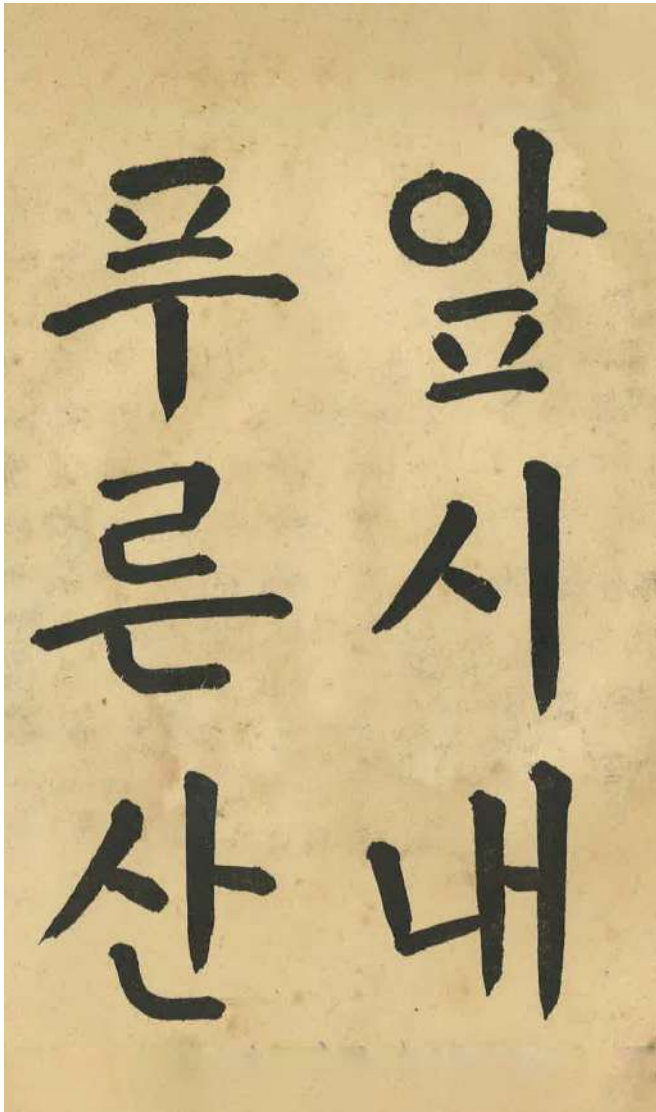 앞시내
푸른산